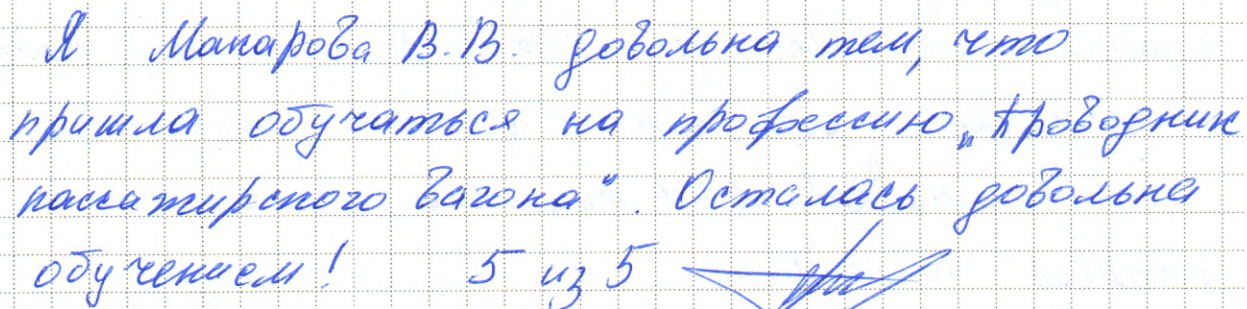 Я Макарова В.В. довольна тем, что
пришла обучаться на профессию „Проводник
пассажирского вагона“. Осталась довольна
обучением! 5 из 5